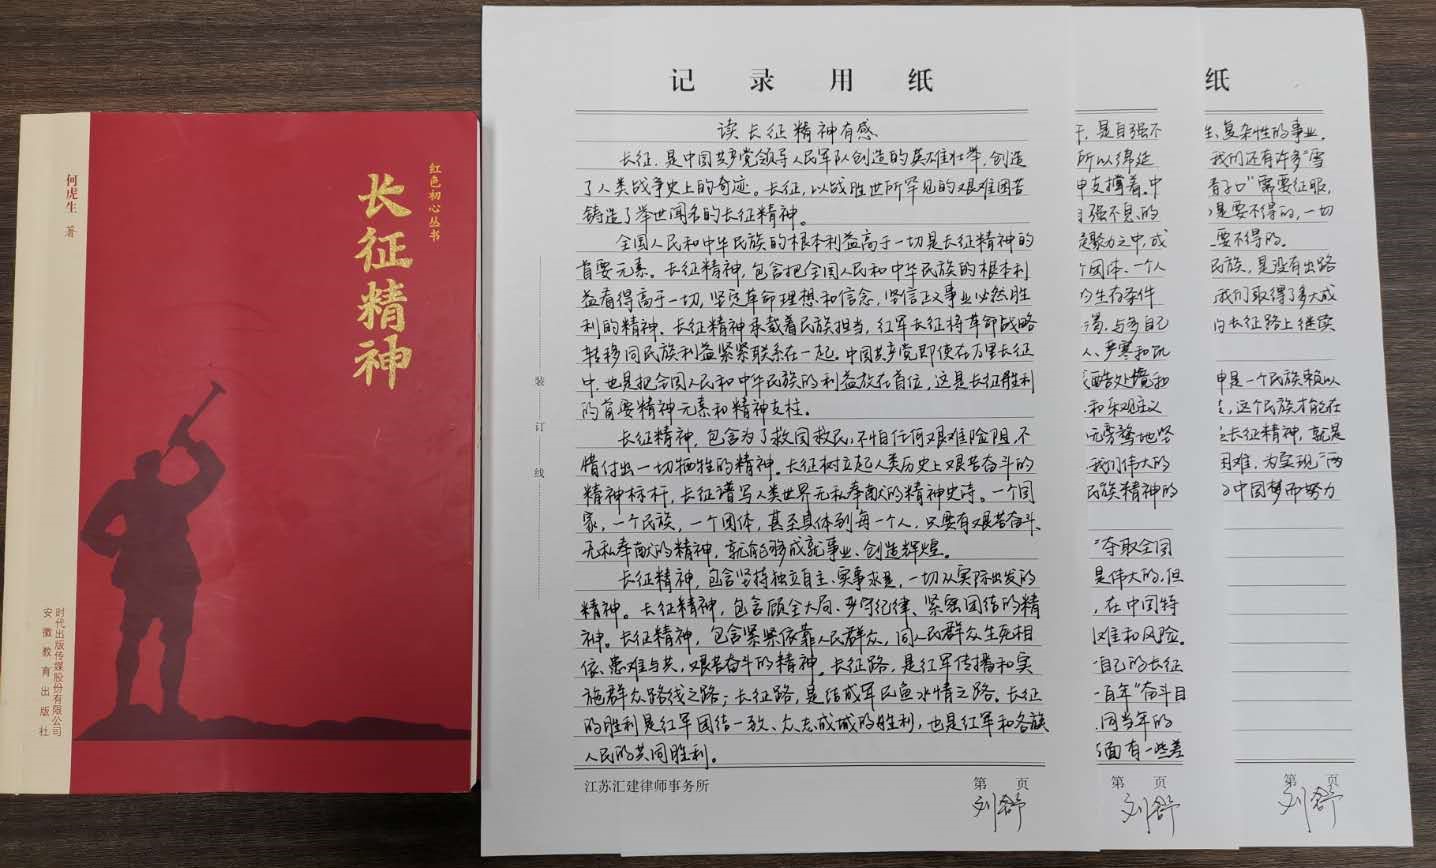 红色初心丛书
长征精神
何虎生 著
时代出版传媒股份有限公司
安徽教育出版社
记录用纸
读长征精神有感
长征,是中国共产党领导人民军队创造的英雄壮举,创造
了人类战争史上的奇迹。长征,以战胜世所罕见的艰难困苦
铸造了举世闻名的长征精神。
全国人民和中华民族的根本利益高于一切是长征精神的
首要元素。长征精神,包含把全国人民和中华民族的根本利
益看得高于一切,坚定革命理想和信念,坚信正义事业必然胜
利的精神。长征精神承载着民族担当,红军长征将革命战略
转移同民族利益紧紧联系在一起。中国共产党即使在万里长征
中,也是把全国人民和中华民族的利益放在首位,这是长征胜利
的首要精神元素和精神支柱。
长征精神,包含为了救国救民,不怕任何艰难险阻,不
惜付出一切牺牲的精神。长征树立起人类历史上艰苦奋斗的
精神标杆,长征谱写人类世界无私奉献的精神史诗。一个国
家,一个民族,一个团体,甚至具体到每一个人,只要有艰苦奋斗、
无私奉献的精神,就能够成就事业、创造辉煌。
长征精神,包含坚持独立自主、实事求是,一切从实际出发的
精神。长征精神,包含顾全大局、严守纪律、紧密团结的精
神。长征精神,包含紧紧依靠人民群众,同人民群众生死相
依、患难与共,艰苦奋斗的精神。长征路,是红军传播和实
施群众路线之路;长征路,是结成军民鱼水情之路。长征
的胜利是红军团结一致、众志成城的胜利,也是红军和各族
人民的共同胜利。
装订线
江苏汇建律师事务所
第 页
刘舒
是自强不
所以绵延
支撑着。中
自强不息的
聚力之中,成
个团体、一个人
的生存条件
与多自
人、严寒和饥
酷处境和
和乐观主义
我们伟大的
民族精神的
“夺取全国
是伟大的,但
,在中国特
难和风险。
自己的长征
百年”奋斗目
同当年的
面有一些差
第 页
刘舒
纸
复杂性的事业。
我们还有许多“雪
”需要征服,
是要不得的,一切
要不得的。
民族,是没有出路
我们取得了多大成
长征路上继续
是一个民族赖以
,这个民族才能在
长征精神,就是
困难,为实现“两
中国梦而努力
第 页
刘舒